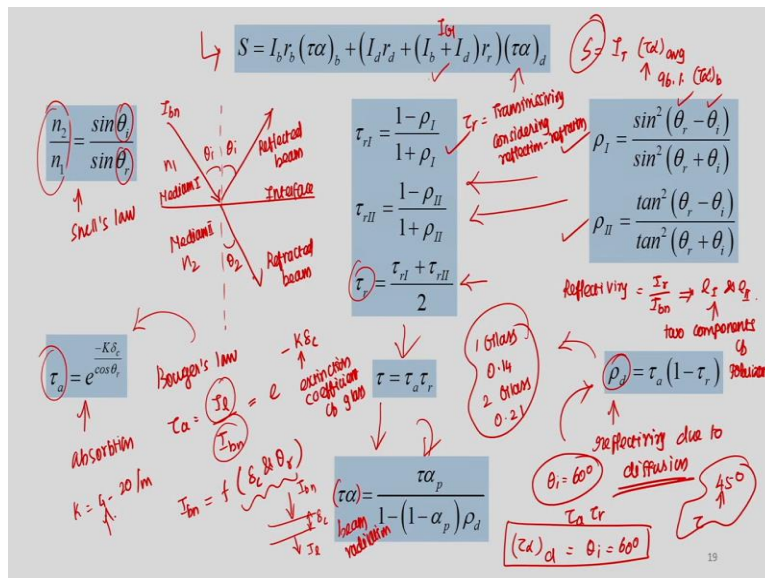 I_G
S = I_b r_b (τα)_b + (I_d r_d + (I_b + I_d) r_r)(τα)_d
S = I_T (τα)avg
96.1. (τα)_b
n_2 / n_1 = sinθ_i / sinθ_r
Snell's law
I_bn
θi θi
Reflected beam
n1
Medium I
Interface
Medium II
n2
θ2
Refracted beam
τ_rI = (1 − ρ_I) / (1 + ρ_I)
τ_r = Transmissivity
considering
reflection-refraction
τ_rII = (1 − ρ_II) / (1 + ρ_II)
τ_r = (τ_rI + τ_rII) / 2
ρ_I = sin²(θ_r − θ_i) / sin²(θ_r + θ_i)
ρ_II = tan²(θ_r − θ_i) / tan²(θ_r + θ_i)
Reflectivity = I_r / I_bn ⇒ ρ_I & ρ_II
two components
of
τ_a = e^(−Kδ_c / cosθ_r)
absorbtion
K = 4 - 20 /m
Bouger's law
τa = I_l / I_bn = e^(−Kδc)
extinction
coefficient
of glass
I_bn = f (δc & θr)
I_bn
δc
I_l
τ = τ_a τ_r
1 Glass
0.14
2 Glass
0.21
ρ_d = τ_a (1 − τ_r)
reflectivity due to
diffusion
θi = 60°
τa τr
(τα)_d = θi = 60°
45°
τ
(τα) = τα_p / (1 − (1 − α_p) ρ_d)
beam
radiation
19